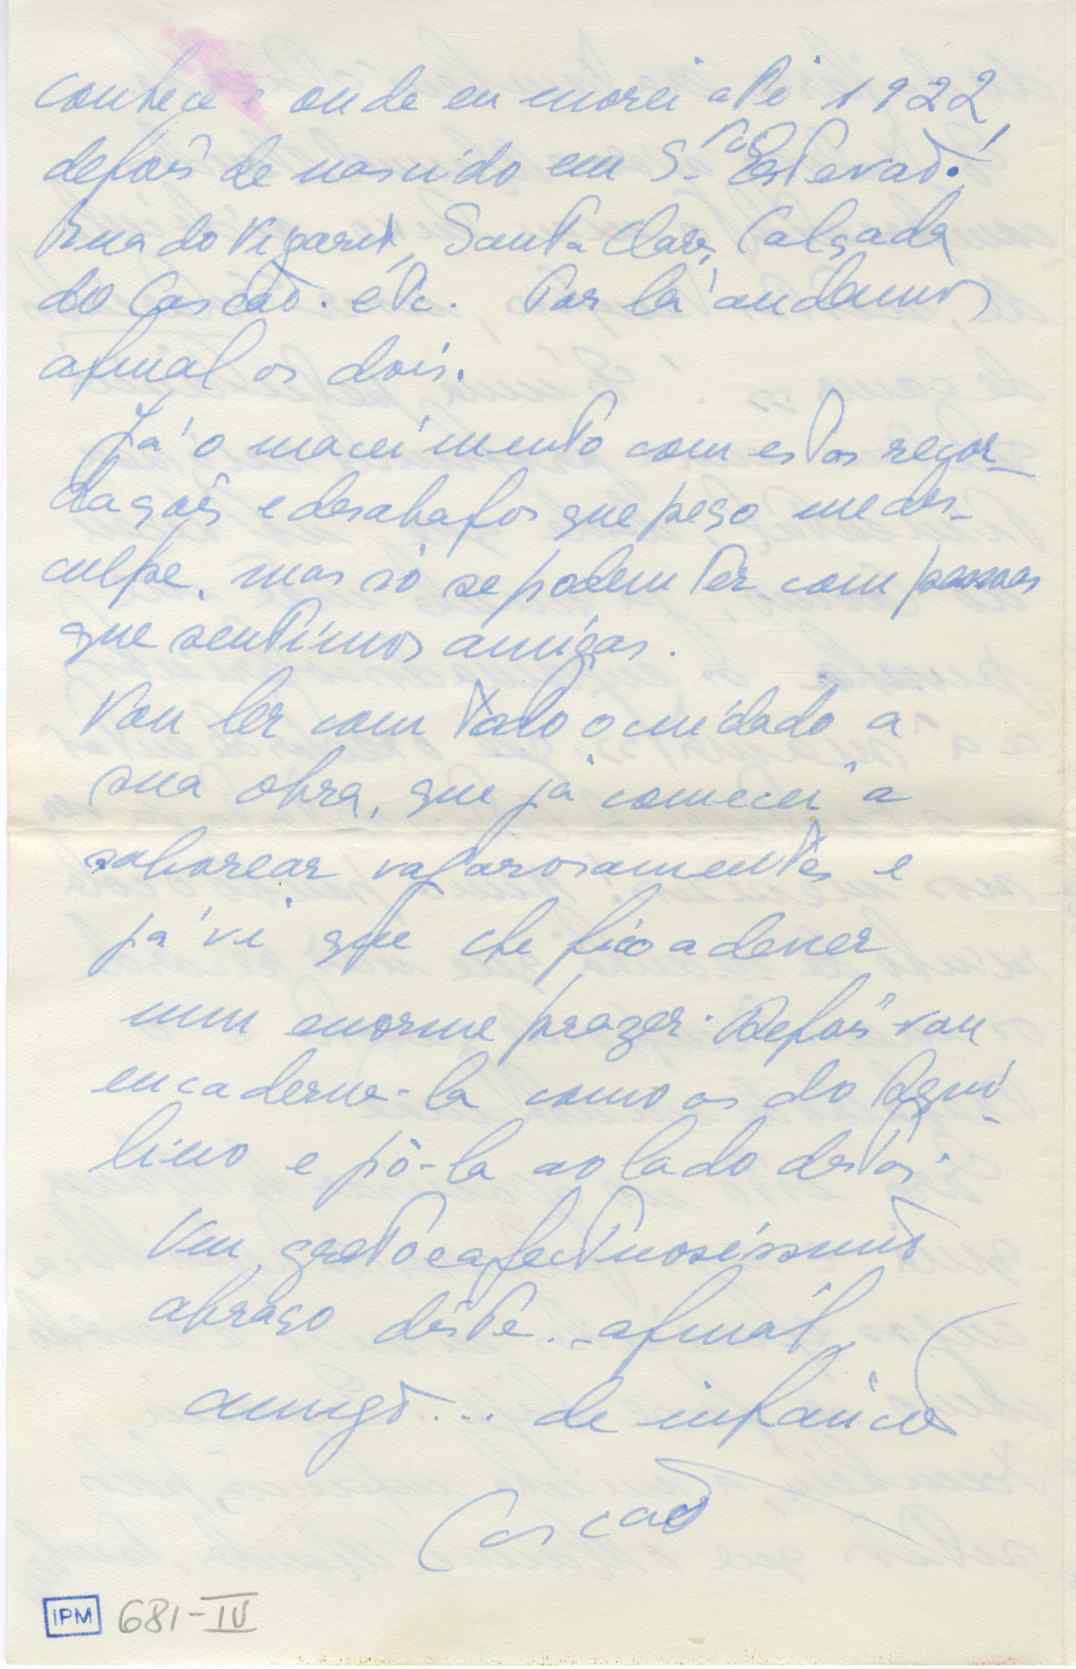 conhece e onde eu morei até 1922,
depois de nascido em S.to Estevão.
Rua do Vigario, Santa Clara, Calçada
do Cascão. etc. Por lá andamos
afinal os dois.
Já o macei muito com estas recor-
dações e desabafos que peço me des-
culpe, mas só se podem ter com pessoas
que sentimos amigas.
Vou ler com todo o cuidado a
sua obra, que já comecei a
saborear vagarosamente e
já vi que lhe fico a dever
um enorme prazer. Depois vou
encaderna-la como as do Aqui-
lino e pô-la ao lado destas.
Um grato e afectuosissimo
abraço dêste.. afinal
amigo... de infância
Cascão
IPM 681-IV